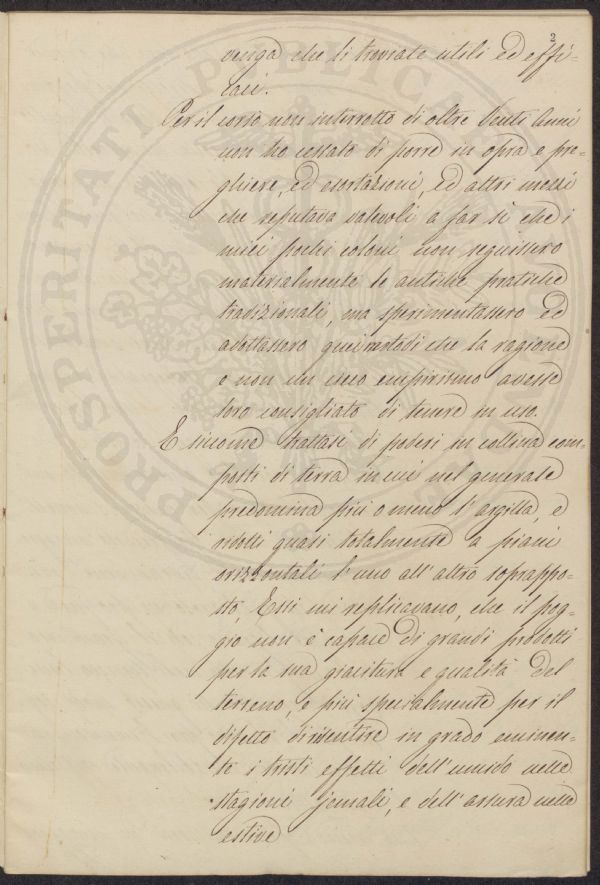 2
venga che li troviate utili ed effi-
caci.
Per il corso non interrotto di oltre Venti Anni
non ho cessato di porre in opra e pre-
ghiere, ed esortazioni, ed altri mezzi
che reputava valevoli a far sì che i
miei pochi coloni non seguissero
materialmente le antiche pratiche
tradizionali, ma sperimentassero ed
adottassero quei metodi che la ragione
e non un cieco empirismo avesse
loro consigliato di tenere in uso.
E siccome trattasi di poderi in collina com-
posti di terra in cui nel generale
predomina più o meno l'argilla, e
ridotti quasi totalmente a piani
orizzontali l'uno all'altro soprappo-
sto, Essi mi replicavano, che il pog-
gio non è capace di grandi prodotti
per la sua giacitura e qualità del
terreno, e più specialmente per il
difetto di risentire in grado eminen-
te i tristi effetti dell'umido nelle
stagioni jemali, e dell'arsura nelle
estive
PROSPERITATI PUBLICAE